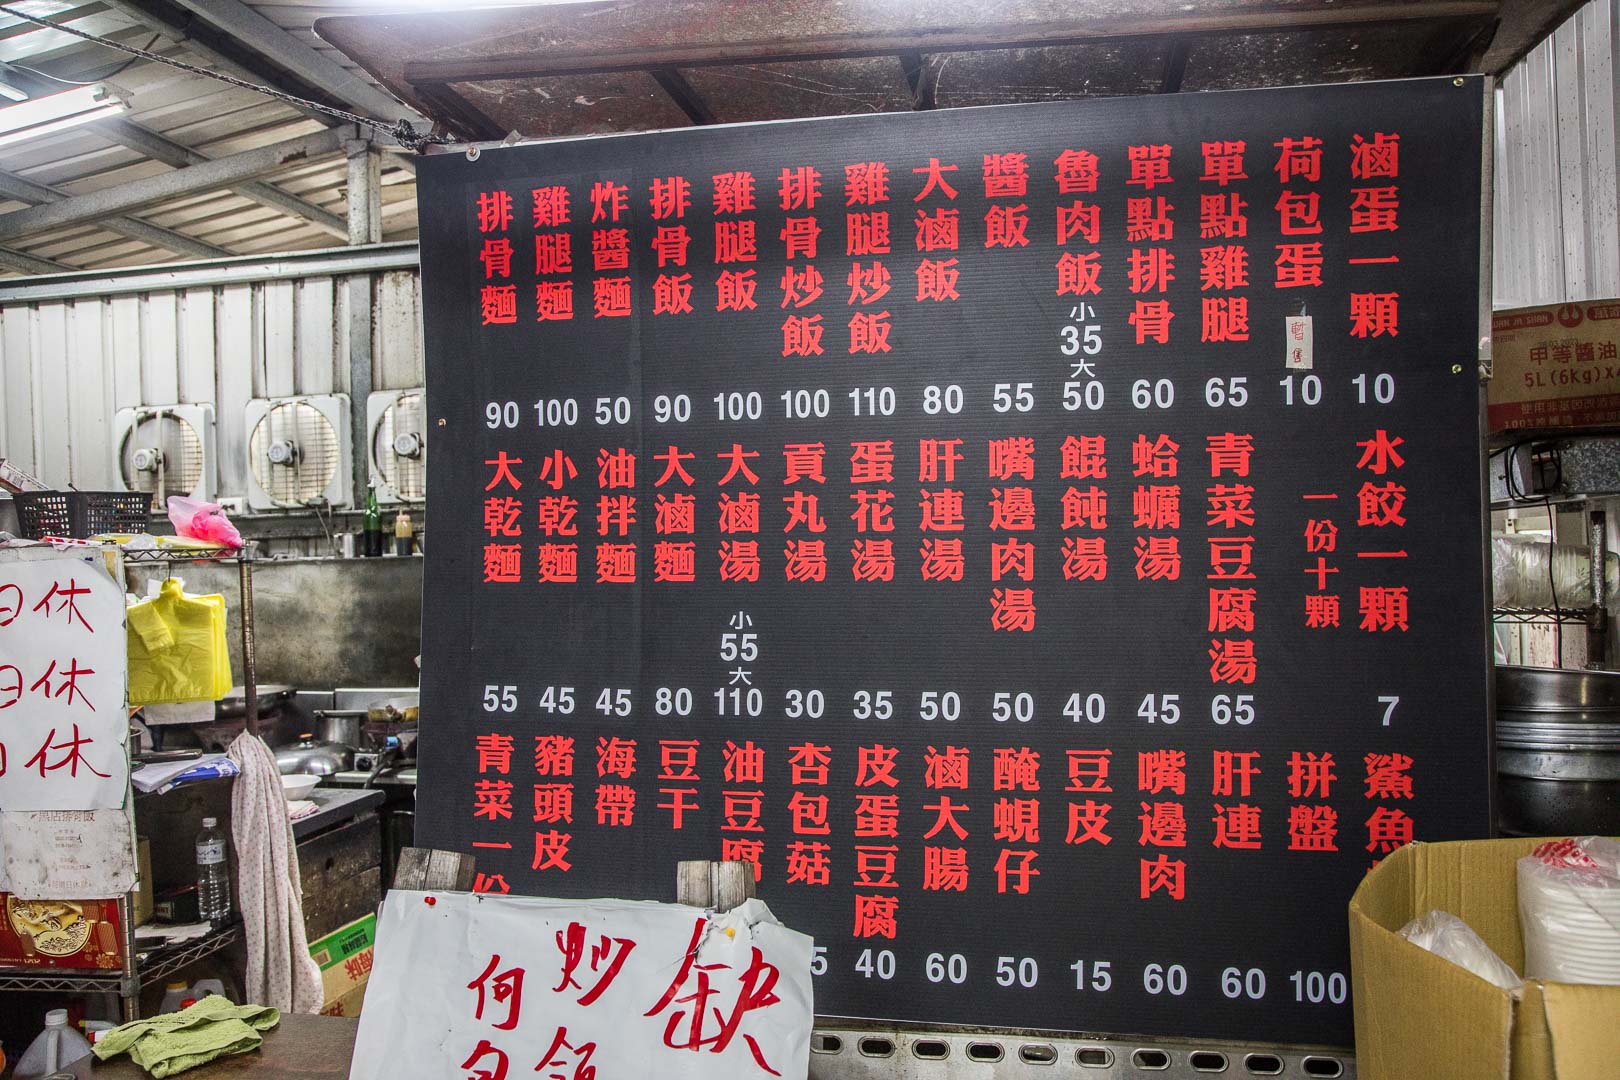 滷蛋一顆 10
荷包蛋 10
暫售
單點雞腿 65
單點排骨 60
魯肉飯 小 35 大 50
醬飯 55
大滷飯 80
雞腿炒飯 110
排骨炒飯 100
雞腿飯 100
排骨飯 90
炸醬麵 50
雞腿麵 100
排骨麵 90
水餃一顆 7
一份十顆
青菜豆腐湯 65
蛤蠣湯 45
餛飩湯 40
嘴邊肉湯 50
肝連湯 50
蛋花湯 35
貢丸湯 30
大滷湯 小 55 大 110
大滷麵 80
油拌麵 45
小乾麵 45
大乾麵 55
鯊魚
拼盤 100
肝連 60
嘴邊肉 60
豆皮 15
醃蜆仔 50
滷大腸 60
皮蛋豆腐 40
杏包菇 5
油豆腐
豆干
海帶
豬頭皮
青菜一份
缺
炒
何
日休
日休
日休
甲等醬油
5L(6Kg)X